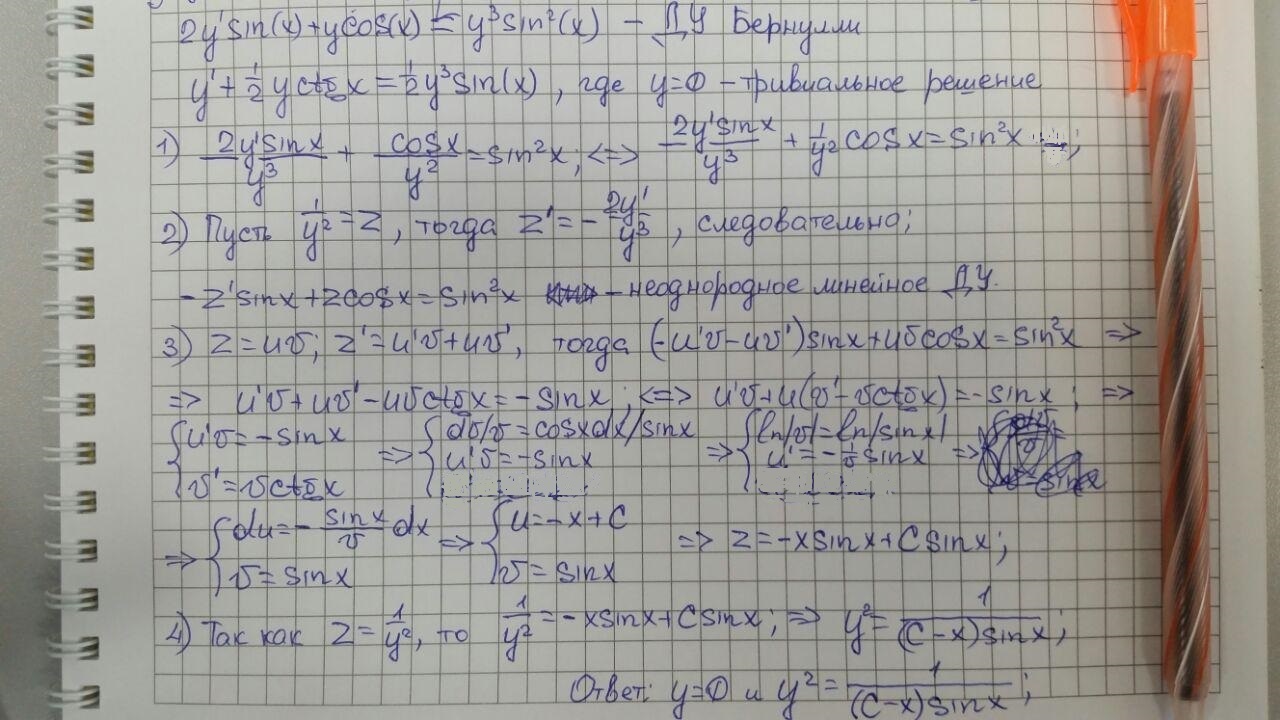 2y'sin(x)+ycos(x) = y³sin²(x) – ДУ Бернулли
y'+½yctgx=½y³sin(x), где y=0 – тривиальное решение
1) 2y'sinx/y³ + cosx/y² = sin²x; <=> 2y'sinx/y³ + 1/y² cosx = sin²x;
2) Пусть 1/y² = z, тогда z' = -2y'/y³, следовательно;
-z'sinx+zcosx=sin²x – неоднородное линейное ДУ.
3) z=uv; z'=u'v+uv', тогда (-u'v-uv')sinx+uvcosx=sin²x =>
=> u'v+uv'-uvctgx=-sinx; <=> u'v+u(v'-vctgx)=-sinx; =>
{u'v=-sinx => {dv/v=cosxdx/sinx => {ln|v|=ln|sinx| =>
v'=vctgx u'v=-sinx u'=-1/v sinx
=> {du=-sinx/v dx => {u=-x+C => z=-xsinx+Csinx;
v=sinx v=sinx
4) Так как z=1/y², то 1/y²=-xsinx+Csinx; => y²=1/((C-x)sinx);
Ответ: y=0 и y²=1/((C-x)sinx);